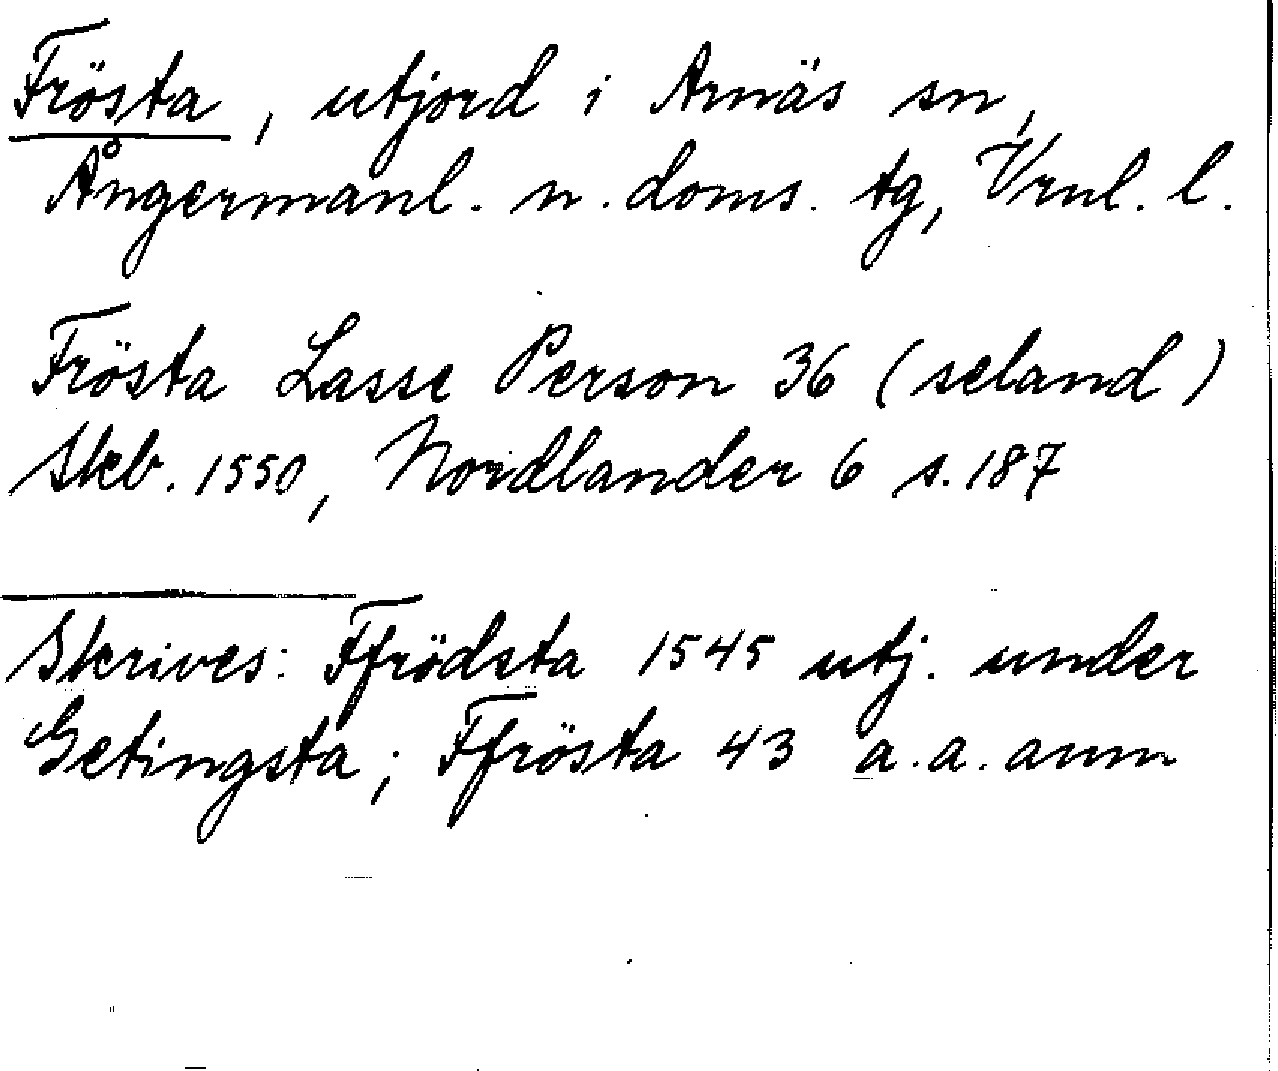 Frösta, utjord i Arnäs sn,
Ångermanl. n. doms. tg, Vrnl. l.
Frösta Lasse Person 36 (seland)
Skb. 1550, Nordlander 6 s. 187
Skrives: Ffrödsta 1545 utj. under
Getingsta; Ffrösta 43 a. a. anm